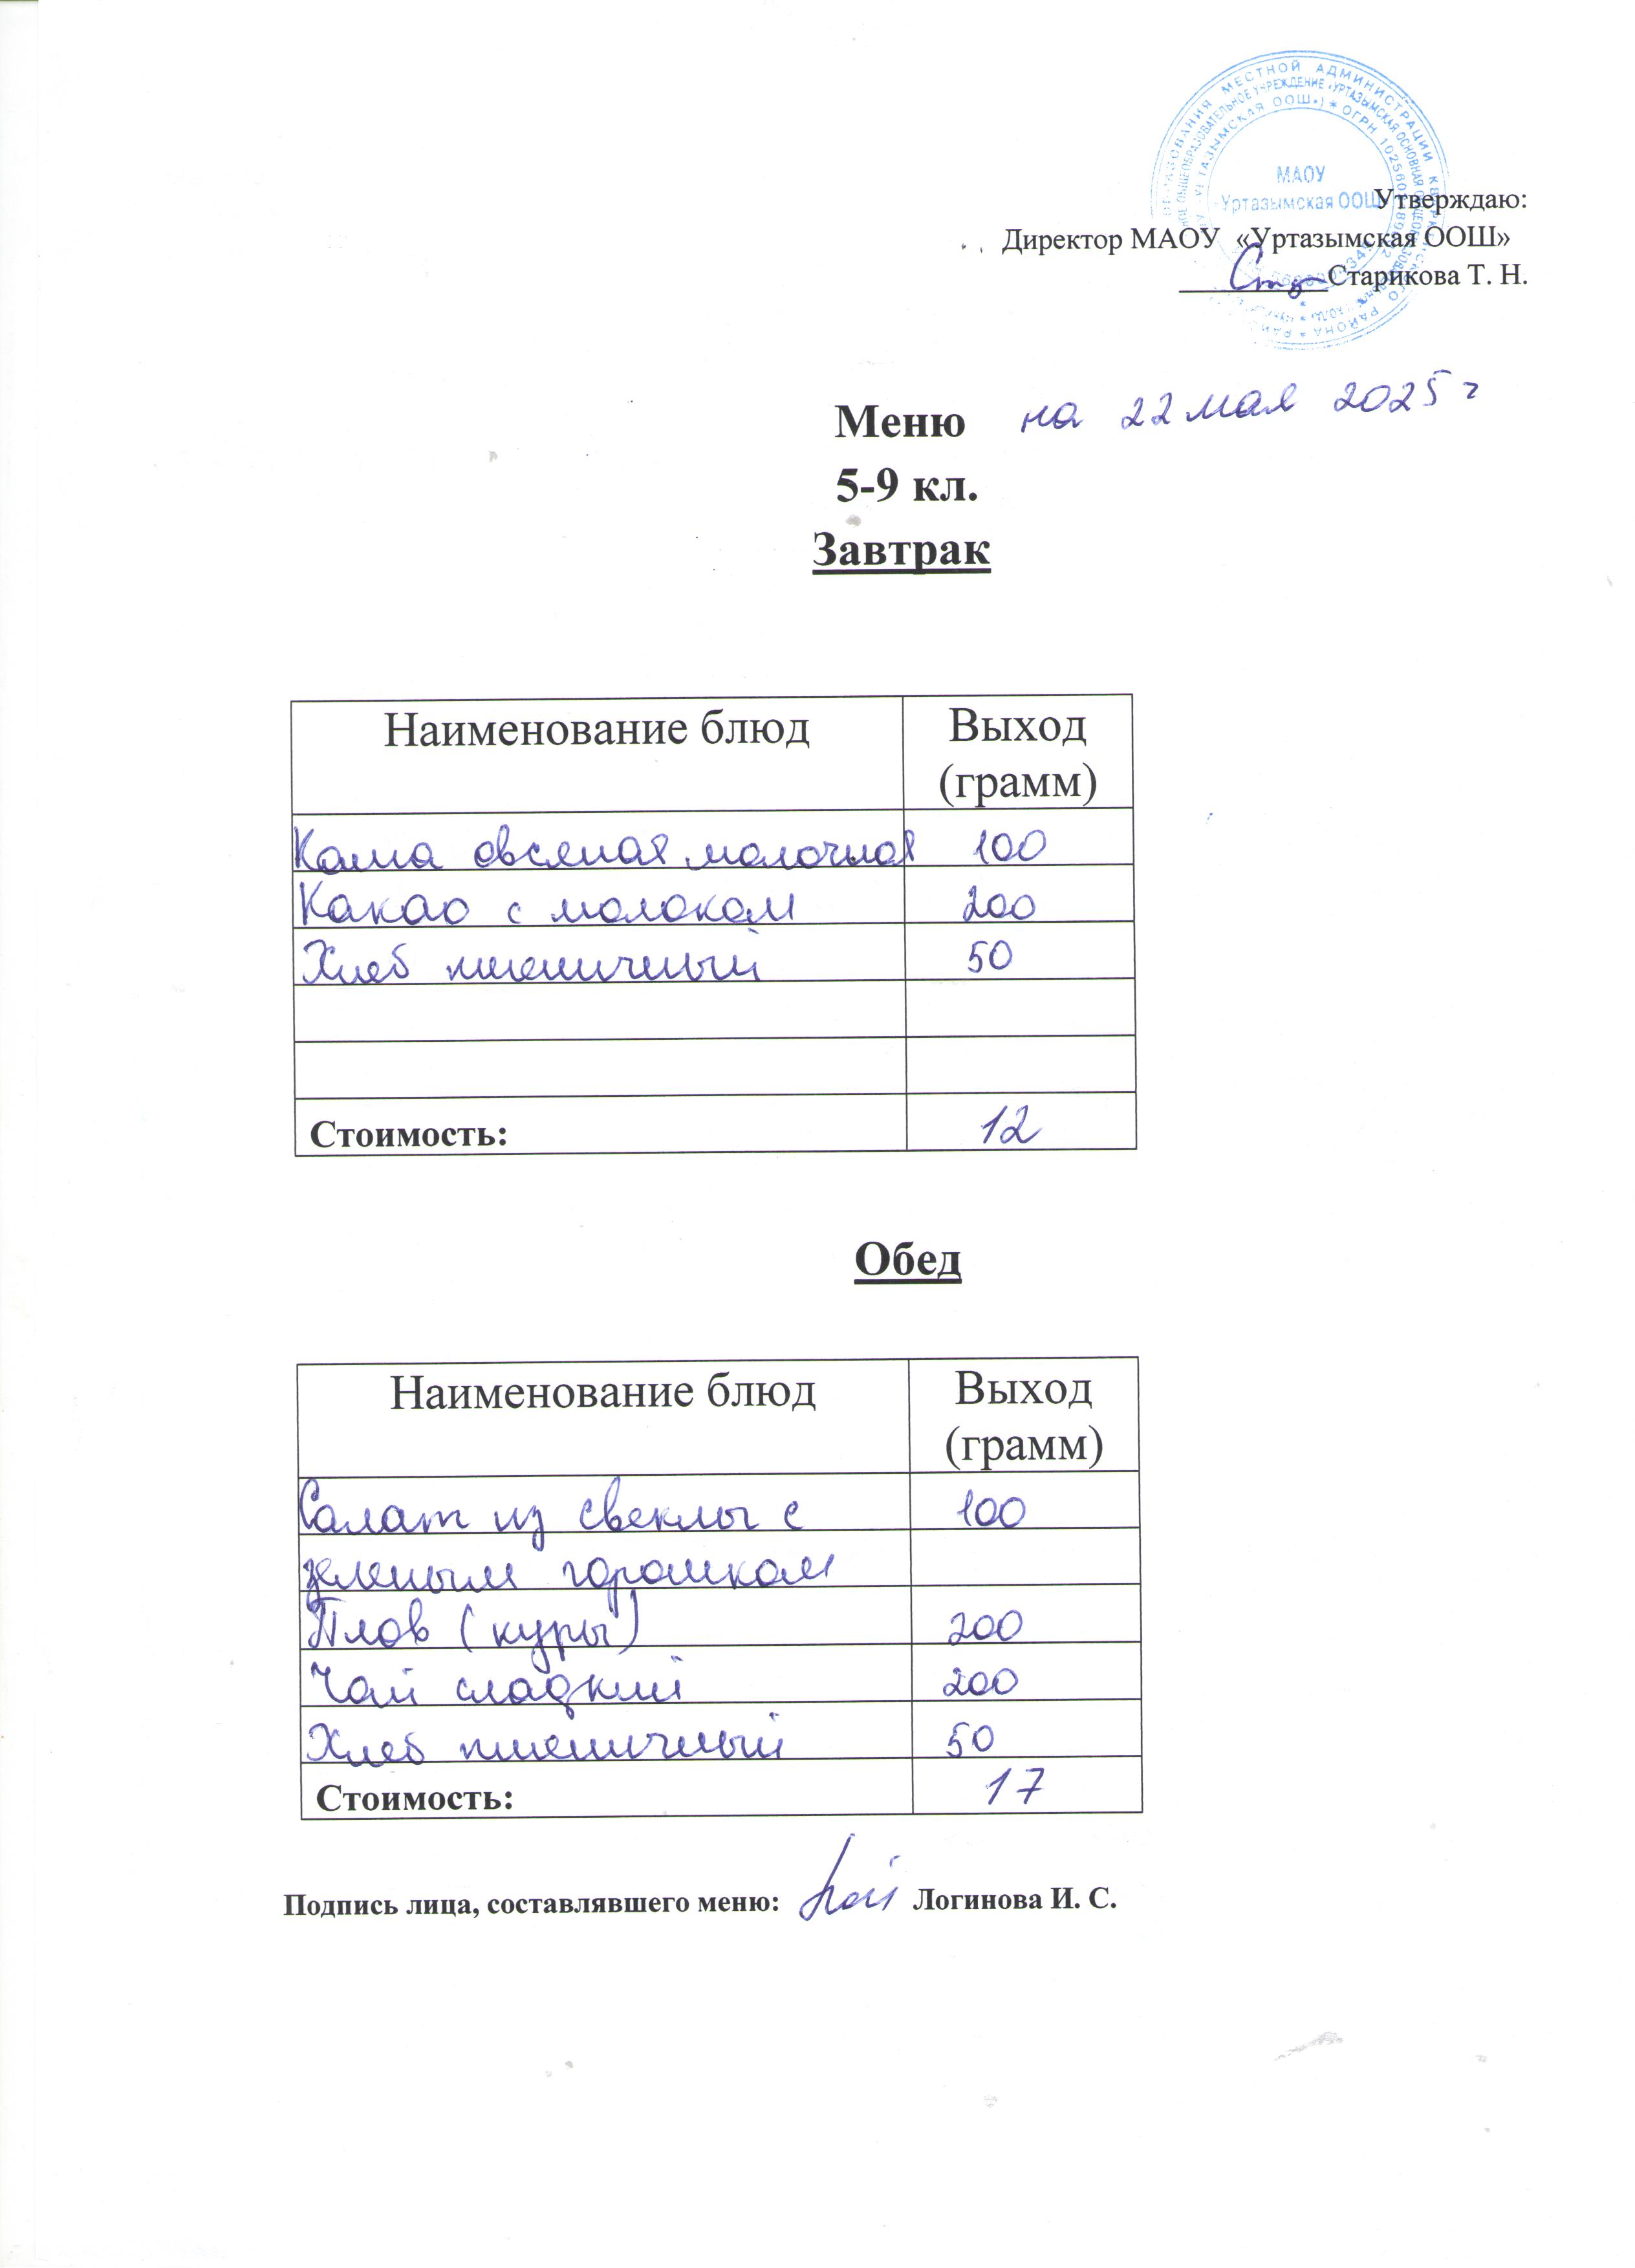 МАОУ
Уртазымская ООШ
Утверждаю:
Директор МАОУ «Уртазымская ООШ»
Старикова Т. Н.
Меню на 22 мая 2025 г
5-9 кл.
Завтрак
Наименование блюд Выход
(грамм)
Каша овсяная молочная 100
Какао с молоком 200
Хлеб пшеничный 50
Стоимость: 12
Обед
Наименование блюд Выход
(грамм)
Салат из свеклы с 100
зеленым горошком
Плов (куры) 200
Чай сладкий 200
Хлеб пшеничный 50
Стоимость: 17
Подпись лица, составлявшего меню: Логинова И. С.